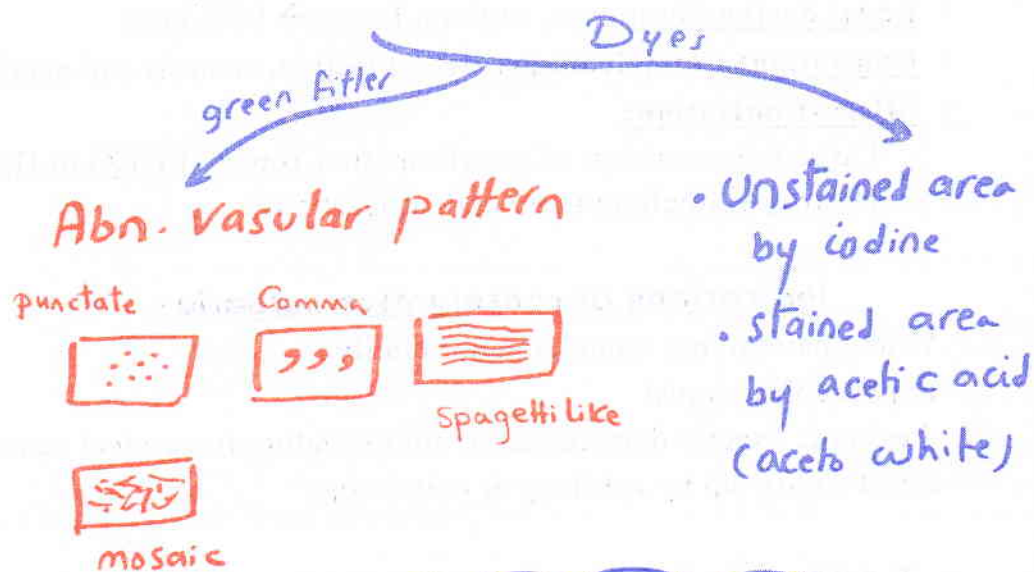 Dyes
green fitler
Abn. vasular pattern
punctate
Comma
Spagetti Like
mosaic
• Unstained area
by iodine
• stained area
by acetic acid
(aceto white)